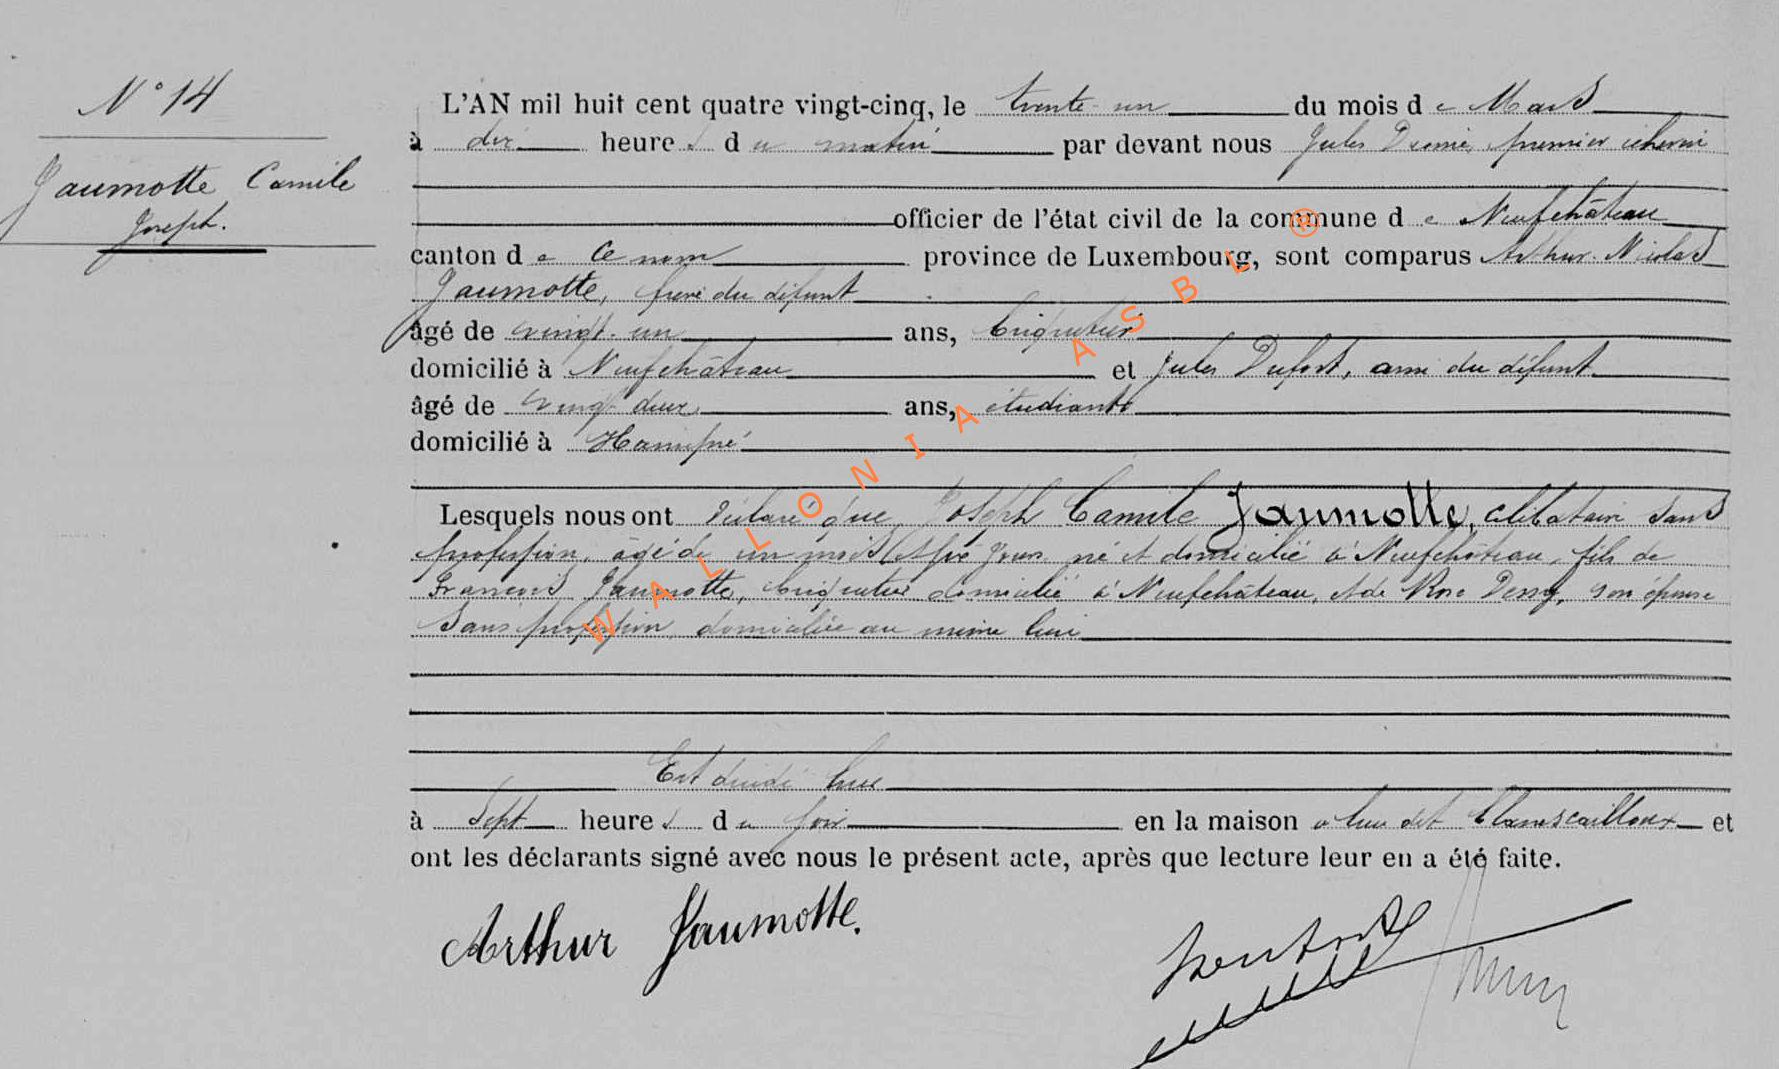 N° 14
Jaumotte Camile
Joseph.
L'AN mil huit cent quatre vingt-cinq, le trente-un du mois de Mars
à dix heures du matin par devant nous Jules premier échevin
officier de l'état civil de la commune de Neufchâteau
canton de ce nom province de Luxembourg, sont comparus Arthur Nicolas
Jaumotte, frère du défunt
âgé de vingt-un ans, briquetier
domicilié à Neufchâteau et Jules Dufort, ami du défunt
âgé de vingt deux ans, étudiant
domicilié à Hamipré
Lesquels nous ont déclaré que Joseph Camile Jaumotte, célibataire sans
profession, âgé de un mois jours né et domicilié à Neufchâteau, fils de
François Jaumotte, briquetier domicilié à Neufchâteau, et de Rose Dessy, son épouse
sans profession, domiciliée au même lieu
Est décédé hier
à sept heures du soir en la maison lieu dit Blancscailloux et
ont les déclarants signé avec nous le présent acte, après que lecture leur en a été faite.
Arthur Jaumotte.
WALLONIA ASBL ®